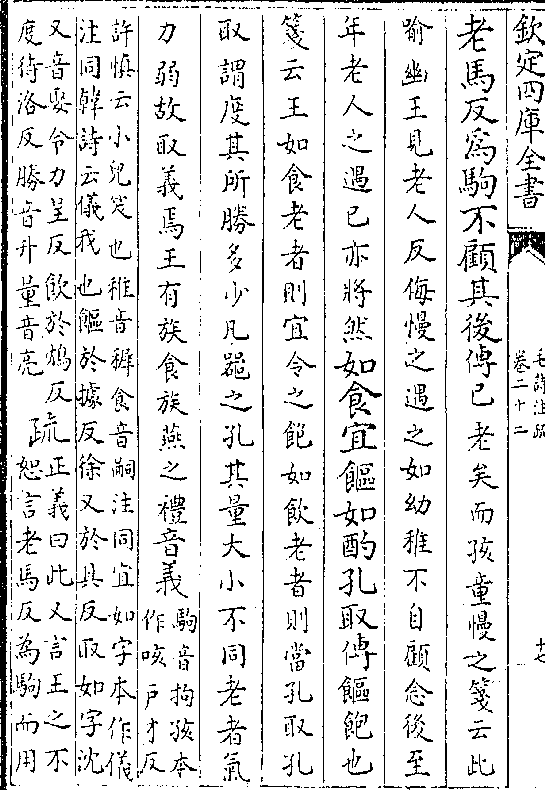 欽定四庫全書
毛詩注疏
卷二十二
十七
老馬反爲駒不顧其後傅已老矣而孩童慢之箋云此
喻幽王見老人反侮慢之遇之如幼稚不自顧念後至
年老人之遇已亦將然如食宜饇如酌孔取傳饇飽也
箋云王如食老者則宜令之飽如飲老者則當孔取孔
取謂度其所勝多少凡器之孔其量大小不同老者氣
力弱故取義焉王有族食族燕之禮音義駒音拘孩本
作咳戸才反
許慎云小兒笑也稚音稺食音嗣注同宜如字本作儀
注同韓詩云儀我也饇於據反徐又於具反取如字沈
又音娶令力呈反飲於鴆反
度待洛反勝音升量音亮
疏正義曰此又言王之不
恕言老馬反為駒而用